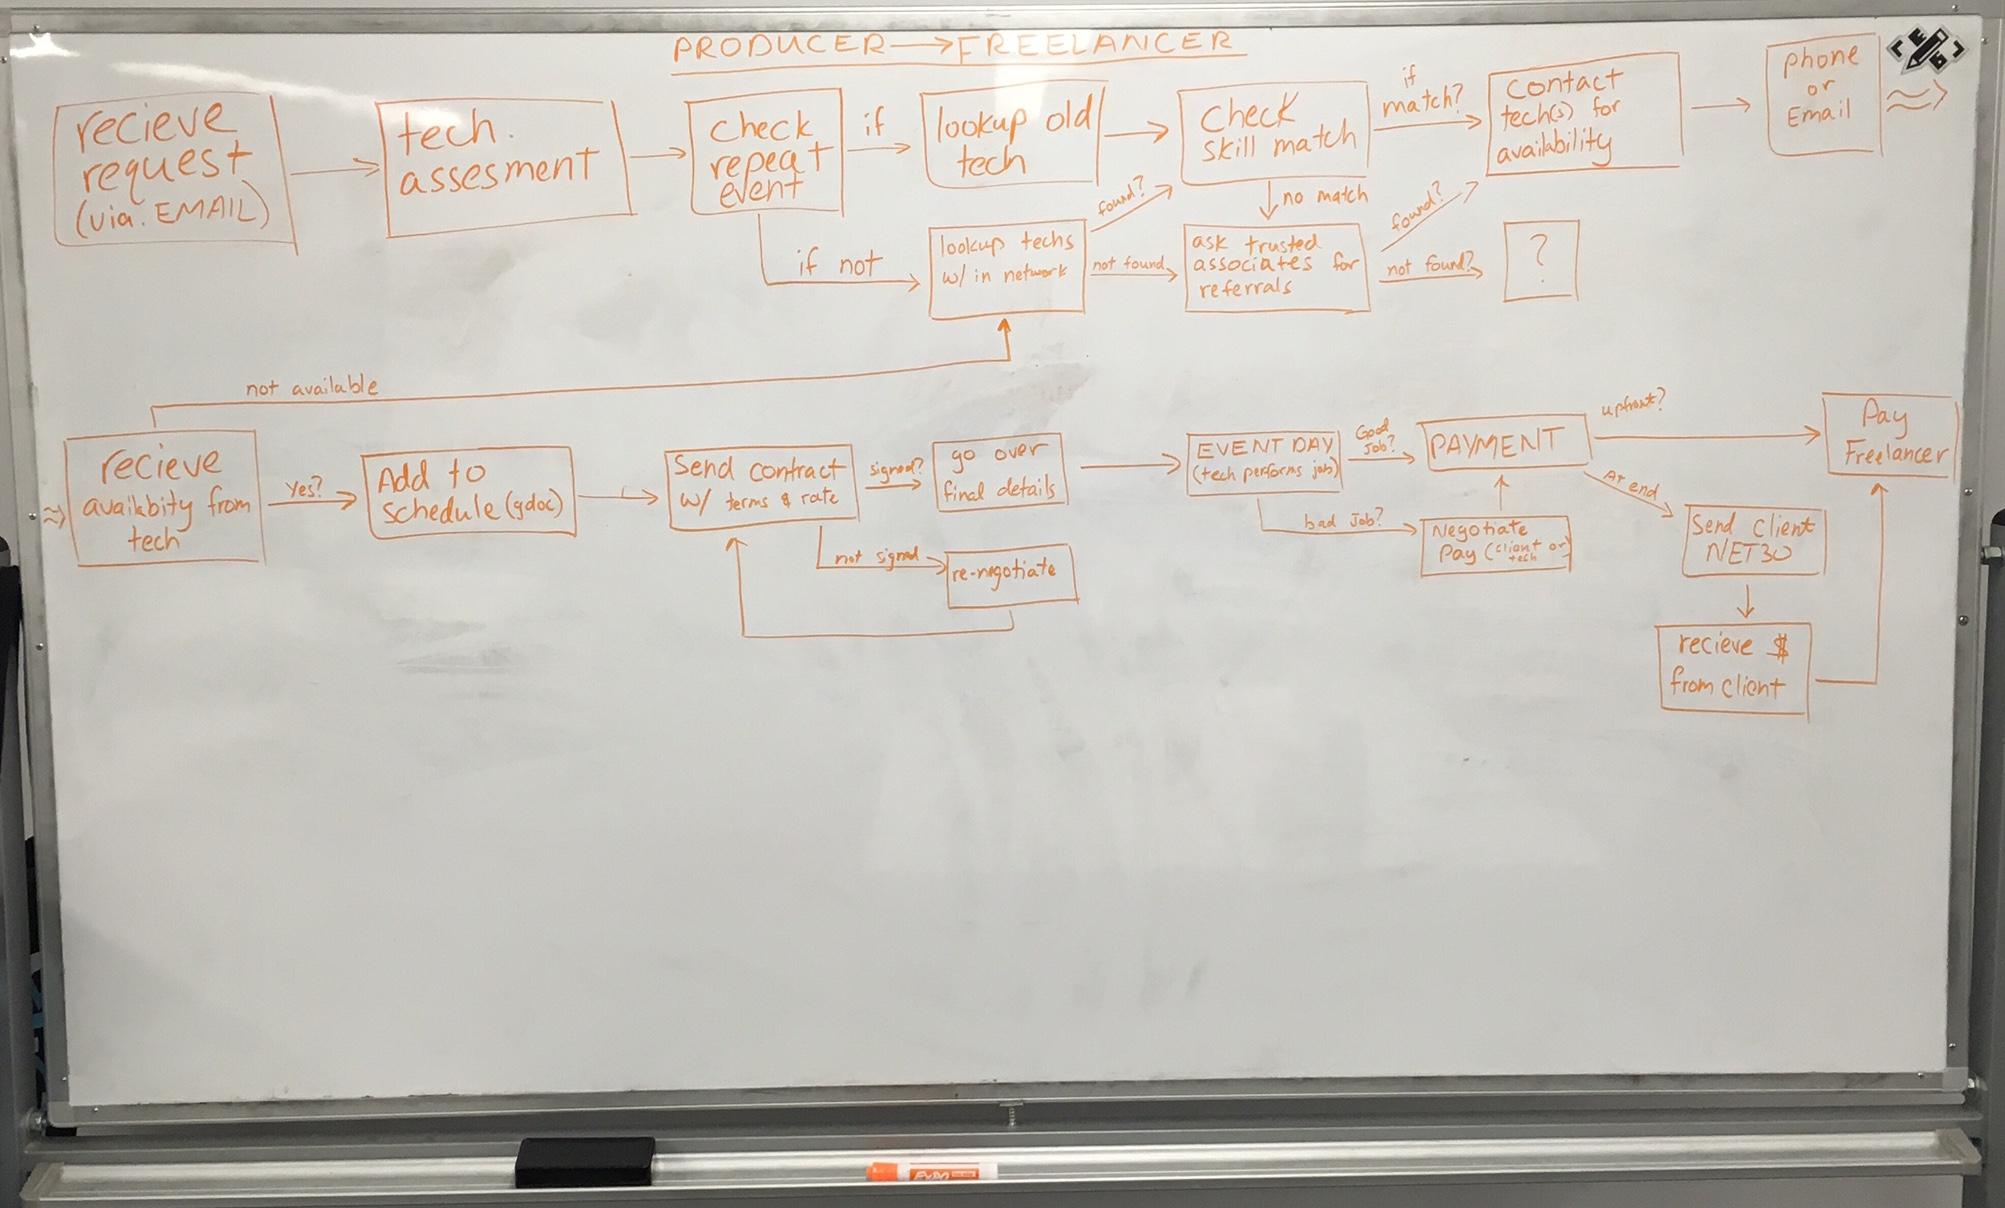 PRODUCER → FREELANCER
recieve
request
(via: EMAIL)
tech.
assesment
check
repeat
event
if
lookup old
tech
check
skill match
if
match?
contact
tech(s) for
availability
phone
or
Email
if not
lookup techs
w/ in network
found?
not found
no match
ask trusted
associates for
referrals
found?
not found?
?
not available
recieve
availabity from
tech
Yes?
Add to
schedule (gdoc)
Send contract
w/ terms & rate
signed?
go over
final details
not signed
re-negotiate
EVENT DAY
(tech performs job)
Good
Job?
bad Job?
PAYMENT
Negotiate
Pay (client or
tech
upfront?
At end
Send Client
NET30
recieve $
from client
Pay
Freelancer
EXPO